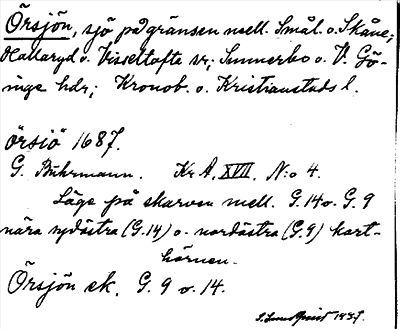 Örsjön, sjö på gränsen mell. Smål. o. Skåne;
Hallaryd o. Visseltofta sr; Sunnerbo o. V. Gö-
inge hdr; Kronob. o. Kristianstads l.
örsiö 1687.
G. Buhrmann. Kr A. XVII. N:o 4.
Läge på skarven mell. G.14 o. G.9
nära sydöstra (G.14) o. nordöstra (G.9) kart-
hörnen.
Örsjön ek. G. 9 o. 14.
S. Lundqvist 1937.